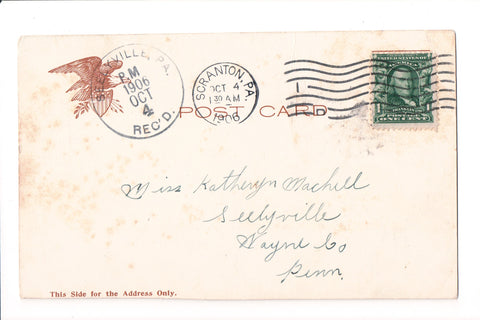 VILLE, PA.
P.M
1906
OCT
4
REC'D.
SCRANTON, PA.
OCT 4
130 AM
1906
1
POST CARD
ONE CENT
Miss Katheryn Machell
Seelyville
Wayne Co
Penn.
This Side for the Address Only.